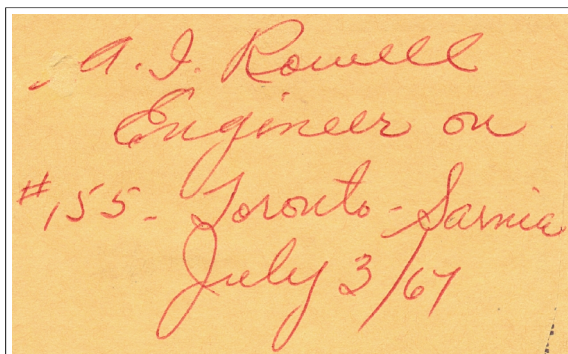 A. I. Rowell
Engineer on
#155- Toronto-Sarnia
July 3/67